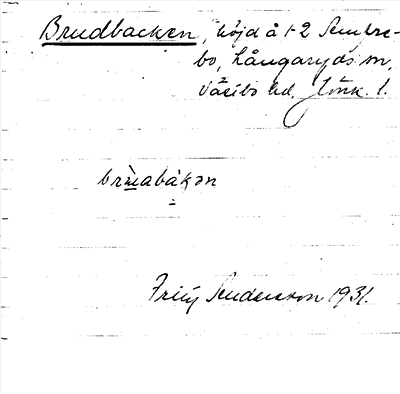 Brudbacken, höjd å 1-2 Sembre-
bo, Långaryds sn,
Västbo hd. Jönk. l.
brùabákən
Fritz Sandersson 1931.